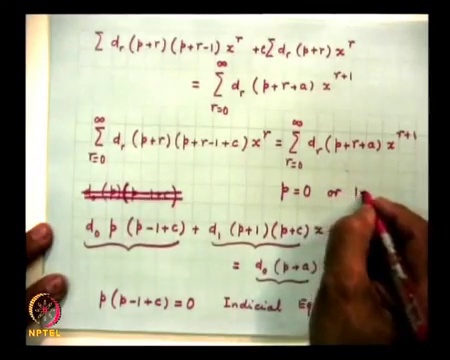 ∑ d_r (p+r) (p+r-1) x^r + c∑ d_r (p+r) x^r
= ∑_{r=0}^{∞} d_r (p+r+a) x^{r+1}
∑_{r=0}^{∞} d_r (p+r) (p+r-1+c) x^r = ∑_{r=0}^{∞} d_r (p+r+a) x^{r+1}
p=0 or 1-
d_0 p (p-1+c) + d_1 (p+1) (p+c) x
= d_0 (p+a)
p(p-1+c)=0 Indicial Eq
NPTEL